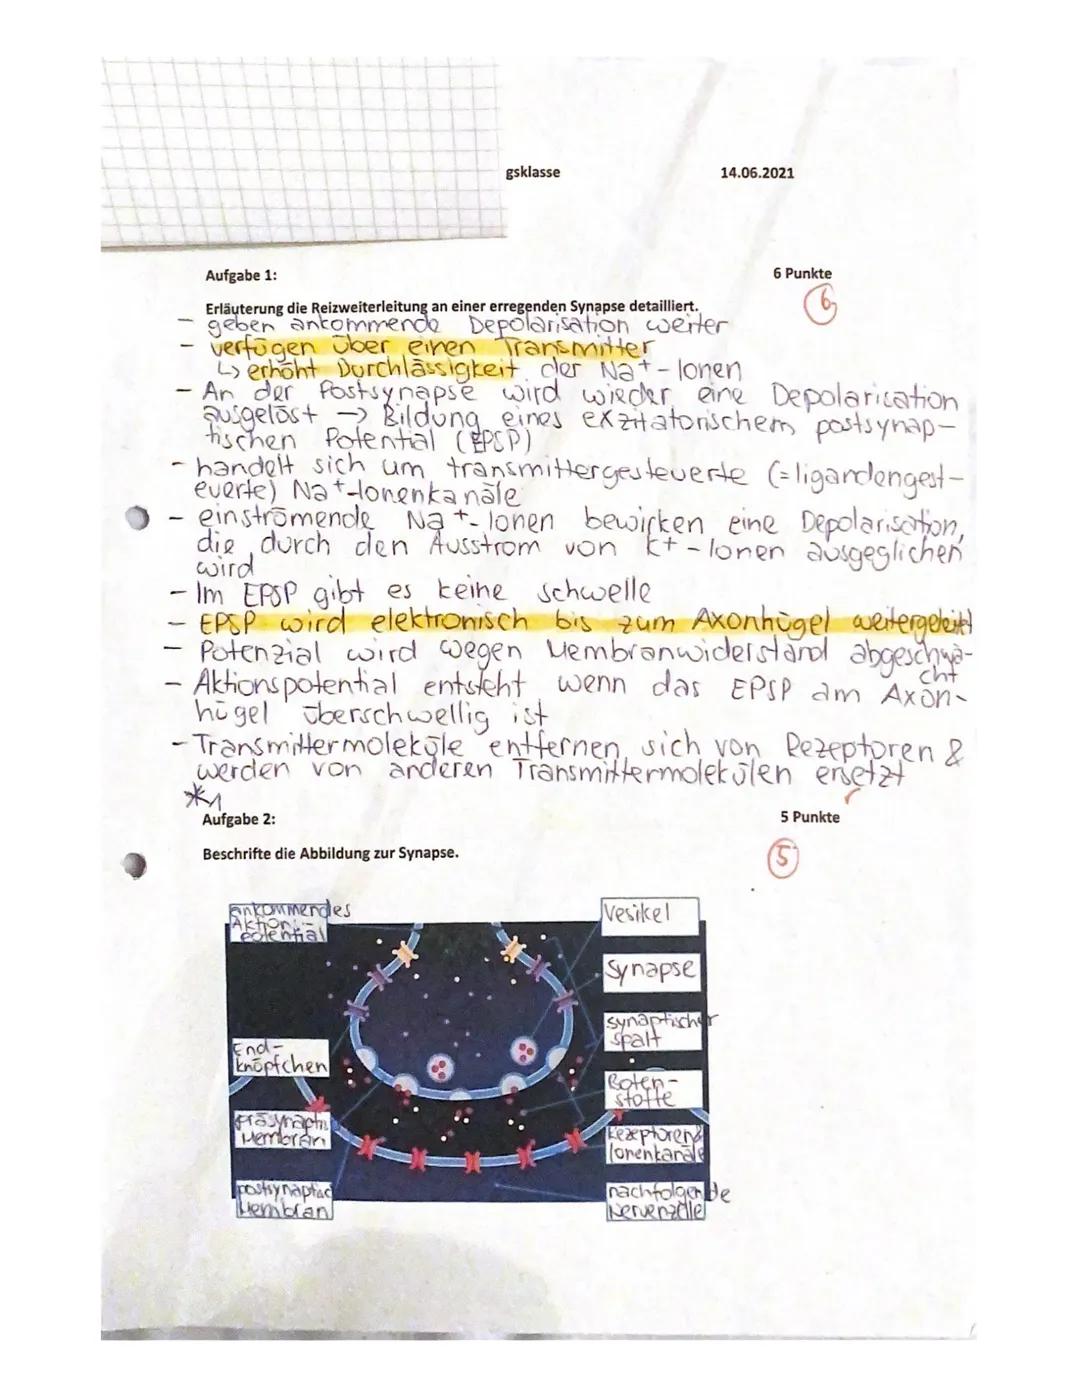 gsklasse 14.06.2021
Aufgabe 1: 6 Punkte
Erläuterung die Reizweiterleitung an einer erregenden Synapse detailliert. 6
- geben ankommende Depolarisation weiter
- verfügen über einen Transmitter
↳ erhöht Durchlässigkeit der Na+-Ionen
- An der Postsynapse wird wieder eine Depolarisation
ausgelöst → Bildung eines exzitatorischem postsynap-
tischen Potential (EPSP)
- handelt sich um transmittergesteuerte (=ligandengest-
euerte) Na+-Ionenkanäle
- einströmende Na+-Ionen bewirken eine Depolarisation,
die durch den Ausstrom von K+-Ionen ausgeglichen
wird
- Im EPSP gibt es keine schwelle
- EPSP wird elektronisch bis zum Axonhügel weitergeleitet
- Potenzial wird wegen Membranwiderstand abgeschwä-
cht
- Aktionspotential entsteht wenn das EPSP am Axon-
hügel überschwellig ist
- Transmittermoleküle entfernen sich von Rezeptoren &
werden von anderen Transmittermolekülen ersetzt
*1
Aufgabe 2: 5 Punkte
Beschrifte die Abbildung zur Synapse. 5
ankommendes
Aktions-
potential
Vesikel
Synapse
synaptischer
Spalt
End-
knöpfchen
Boten-
stoffe
präsynaptis
Membran
Rezeptoren &
Ionenkanäle
postsynaptisc
Membran
nachfolgende
Nervenzelle